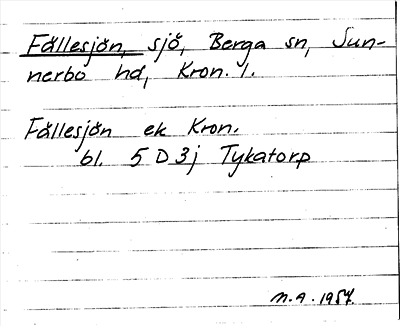 Fällesjön, sjö, Berga sn, Sun-
nerbo hd, Kron. l.
Fällesjön ek Kron.
bl. 5 D 3j Tykatorp
M.A. 1957.